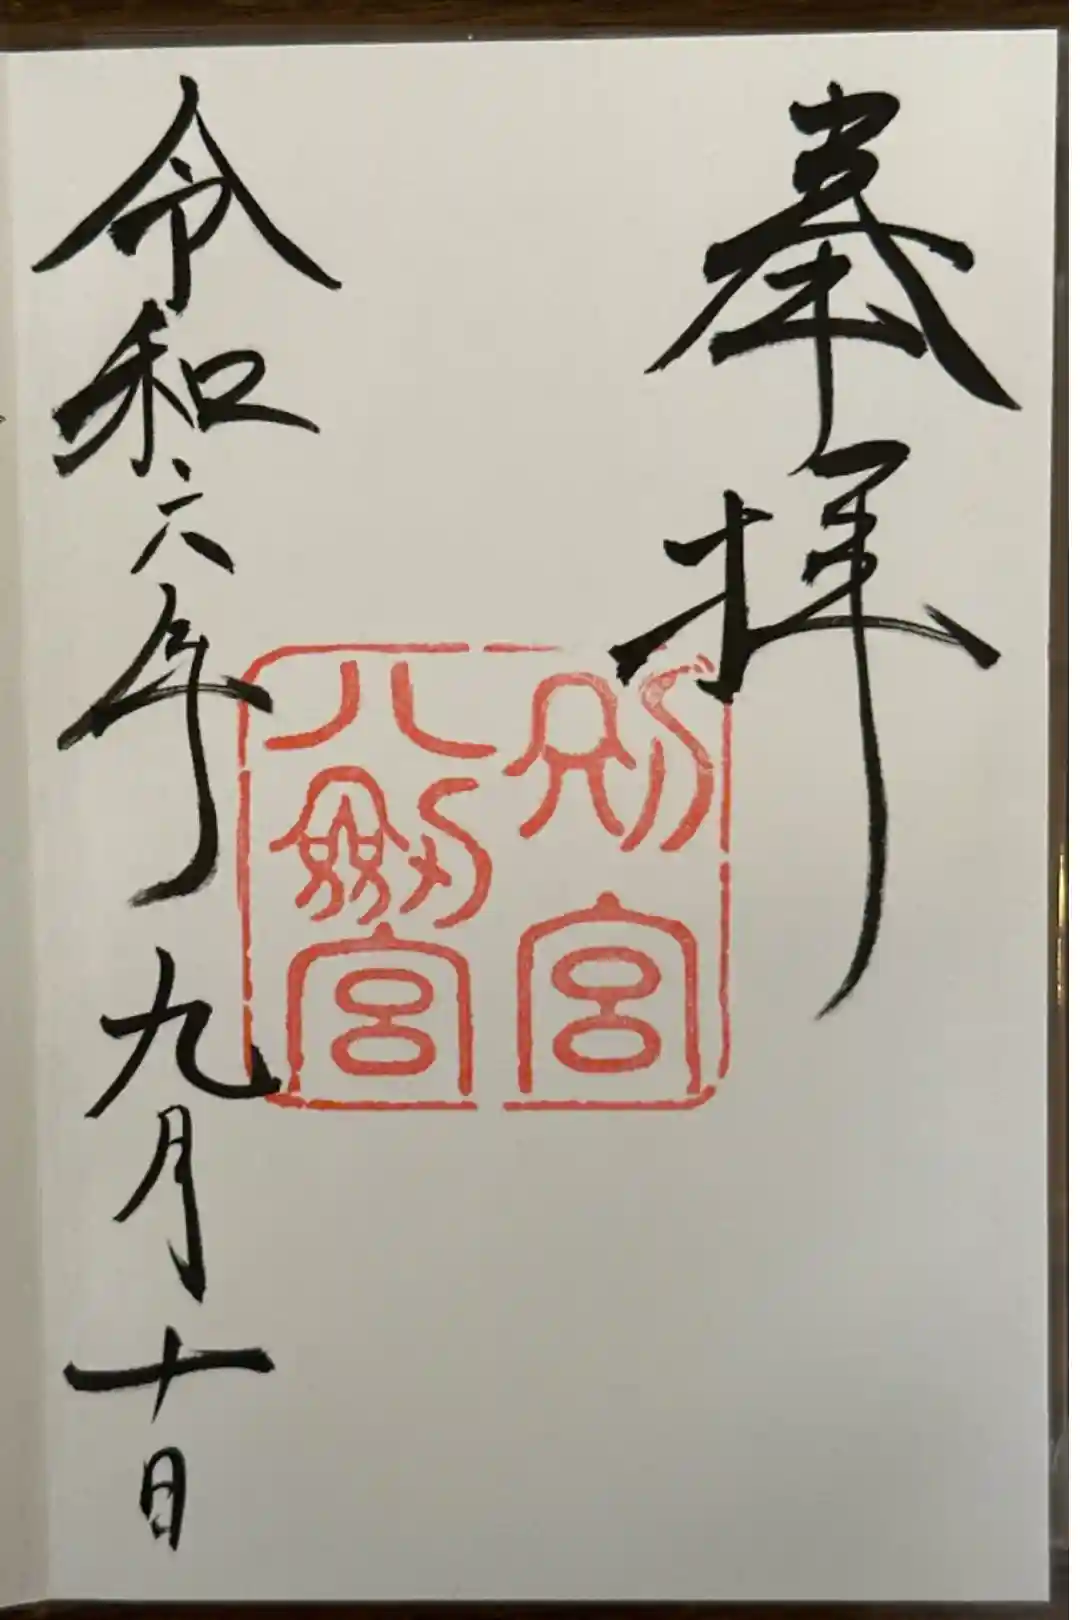 奉拝
別宮
八劔宮
令和六年九月十日